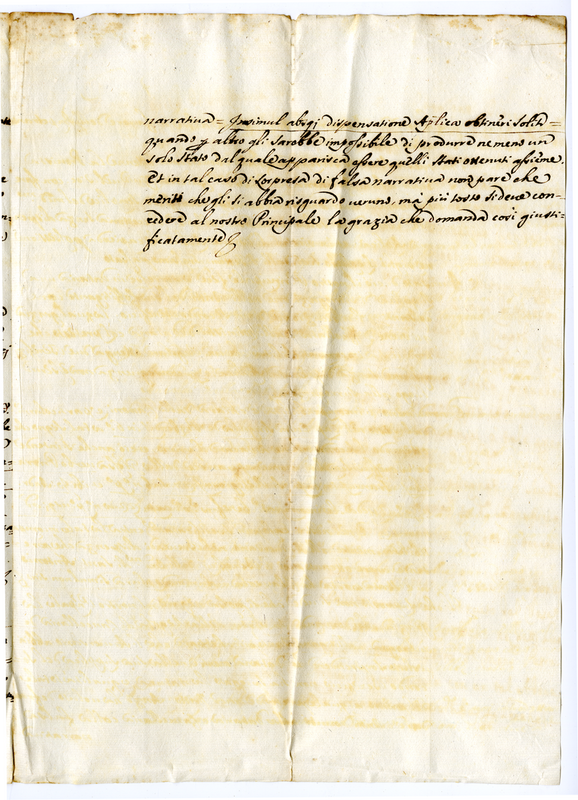 narrativa = Insimul absq; dispensatione Aplica obtineri solit=
quando p altro gli sarebbe impossibile di produrre nemeno un
solo stato dal quale apparisca essere quelli stati ottenuti assieme.
Et in tal caso di sorpresa di falsa narrativa non pare che
meriti che gli si abbia risguardo veruno, mà più tosto si deue con=
cedere al nostro Principale la grazia che domanda così giusti=
ficatamente